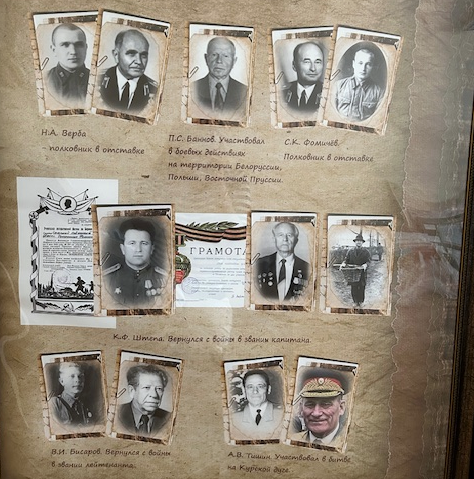 Н.А. Верба
- полковник в отставке
П.С. Баннов. Участвовал
в боевых действиях
на территории Белоруссии,
Польши, Восточной Пруссии.
С.К. Фомичёв.
Полковник в отставке
ГРАМОТА
К.Ф. Штепа. Вернулся с войны в звании капитана.
В.И. Бисаров. Вернулся с войны
в звании лейтенанта.
А.В. Тишин. Участвовал в битве
на Курской дуге.